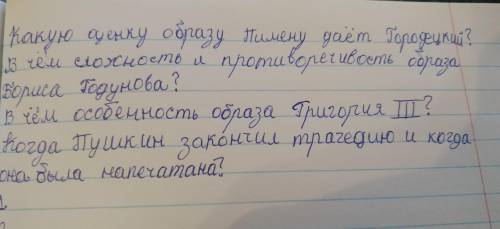 Какую оценку образу Пимену даёт Городецкий?
В чём сложность и противоречивость образа
Бориса Годунова?
В чём особенность образа Григория III?
Когда Пушкин закончил трагедию и когда
она была напечатана?
1